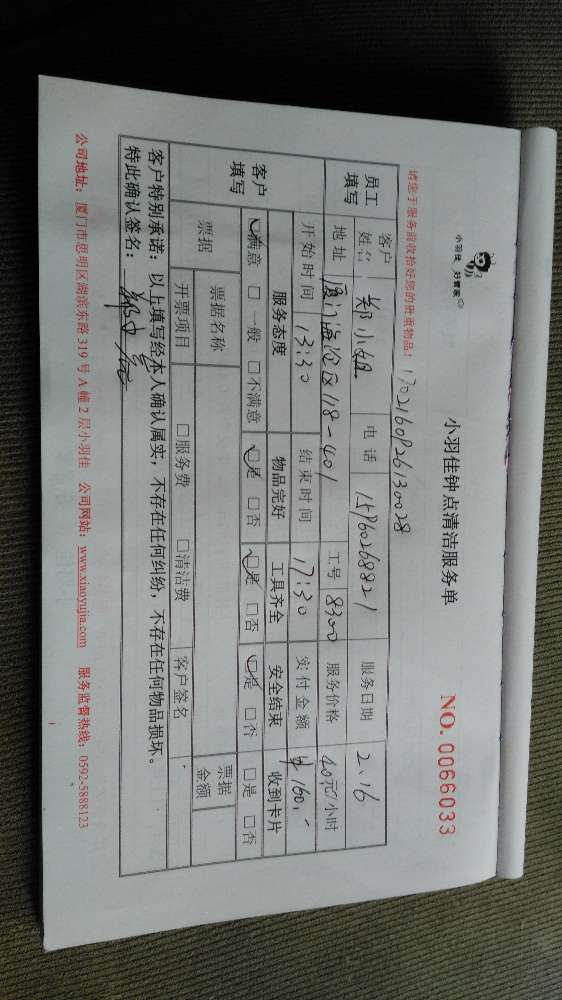 小羽佳 好管家
小羽佳钟点清洁服务单
NO. 0066033
请您于服务前收拾好您的贵重物品！
员工填写
客户姓名 郑小姐 电话 15860268821 服务日期 2.16
地址 厦门海沧区118-401 工号 8300 服务价格 40元/小时
客户填写
开始时间 13:30 结束时间 17:30 实付金额 ¥160.-
服务态度 物品完好 工具齐全 安全结束 收到卡片
☑满意 □一般 □不满意 ☑是 □否 ☑是 □否 ☑是 □否 □是 □否
票据 票据名称 票据金额
开票项目 □服务费 □清洁费 客户签名
客户特别承诺：以上填写经本人确认属实，不存在任何纠纷，不存在任何物品损坏。
特此确认签名：
公司地址：厦门市思明区湖滨东路 319 号 A 幢 2 层小羽佳 公司网站：www.xiaoyujia.com 服务监督热线：0592-5888123